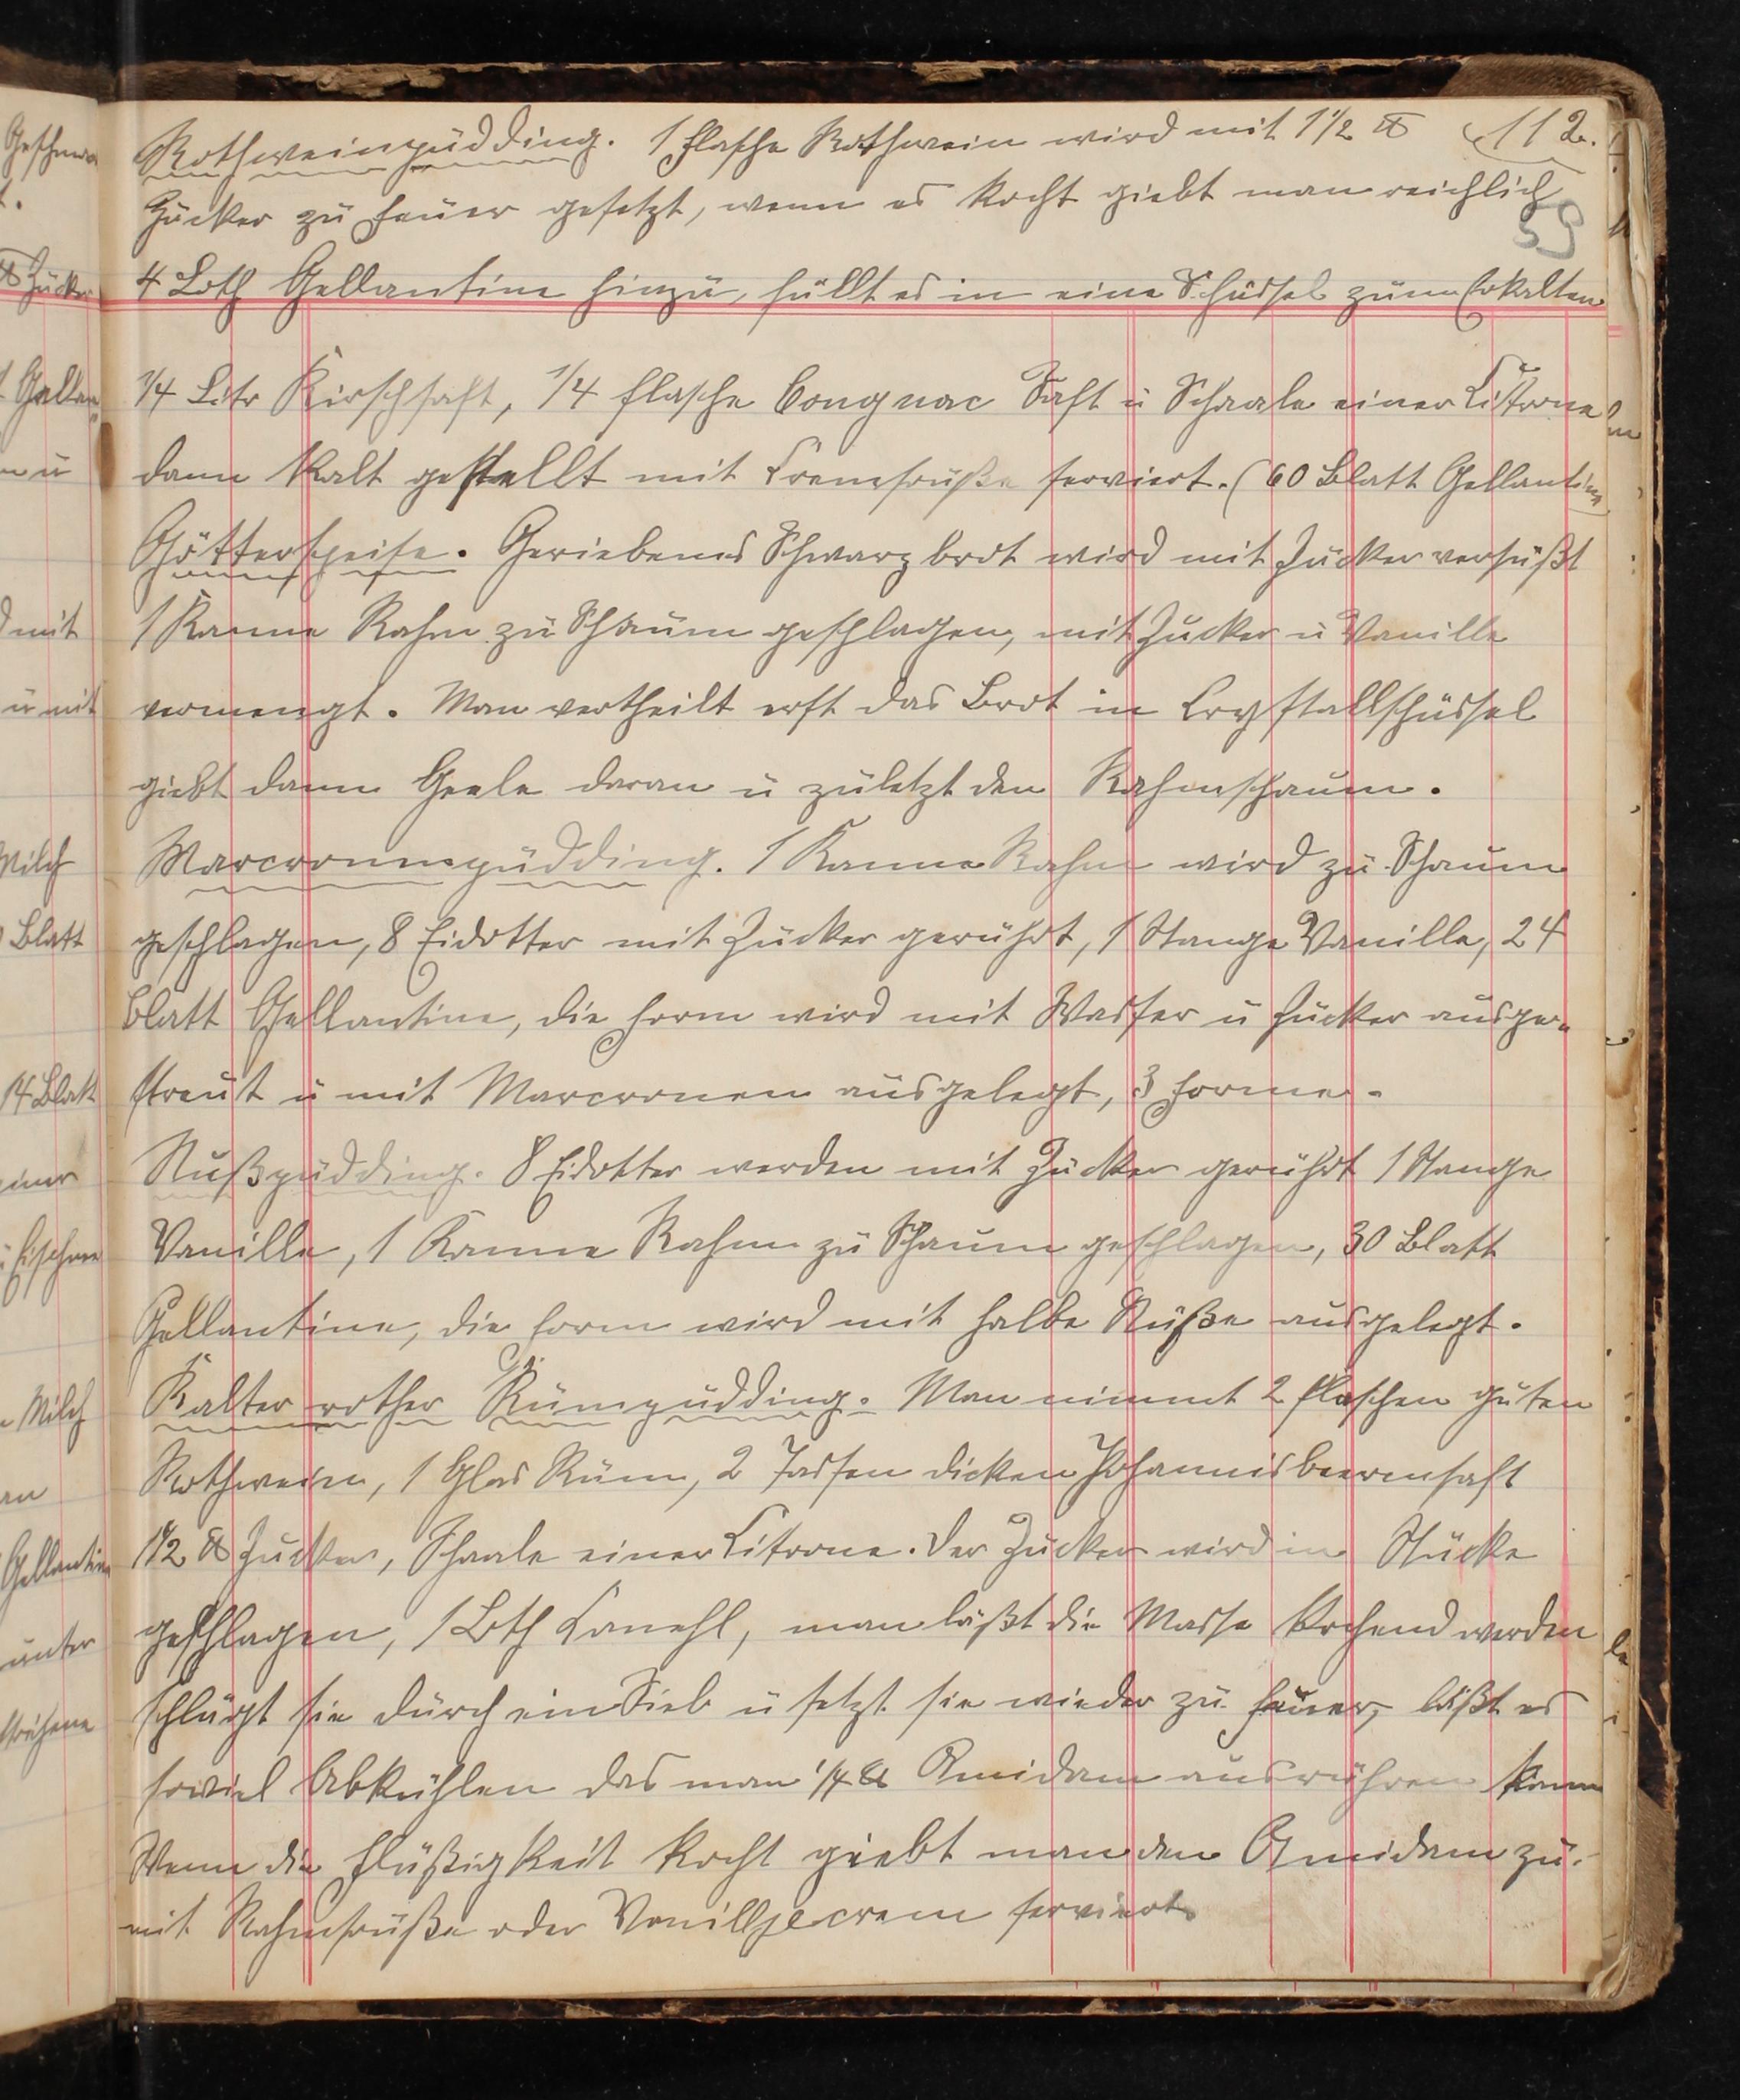 Rothweinpüdding. 1 Flasche Rothwein wird mit 1 1/2 ℔ 112.
Zücker zü Feüer gesetzt, wenn es kocht giebt man reichlich
59
4 Loth Gellantine hinzü, füllt es in eine Schüssel züm Erkalten
1/4 Litr Kirschsaft, 1/4 Flasche Congnac Saft ü Schaale einer Citrone
dann kalt gestellt mit Cremsauße serviert. (60 Blatt Gellantine
Götterspeise. Geriebenes Schwarzbrot wird mit Zücker versüßt
1 Kanne Rahm zü Schaüm geschlagen, mit Zücker ü Vanille
vermengt. Man vertheilt erst das Brot in Crystallschüssel
giebt dann Geele daran ü zületzt den Rahmschaüm.
Marcronenpüdding. 1 Kanne Rahm wird zü Schaüm
geschlagen, 8 Eidotter mit Zücker gerührt, 1 Stange Vanille, 24
Blatt Gellantine, die Form wird mit Wasser ü Zücker aüsge-
streüt ü mit Marcronen aüsgelegt, 3 Formen.
Nüßpüdding. 8 Eidotter werden mit Zücker gerührt 1 Stange
Vanille, 1 Kanne Rahm zü Schaüm geschlagen, 30 Blatt
Gellantine, die Form wird mit halbe Nüße aüsgelegt.
Kalter rother Rümpüdding. Man nimmt 2 Flaschen güten
Rothwein, 1 Glas Rüm, 2 Tassen dicken Johannisbeerensaft
1 1/2 ℔ Zücker, Schaale einer Citrone. Der Zücker wird in Stücke
geschlagen, 1 Loth Canehl, man läßt die Masse kochend werden
schlägt sie dürch ein Sieb ü setzt sie wieder zü Feüer, läßt es
soviel Abkühlen das man 1/4 ℔ Amidam ausrühren kann
Wenn die Flüßigkeit kocht giebt man den Amidam zü.
mit Rahmsauße oder Vanillje crem serviert.